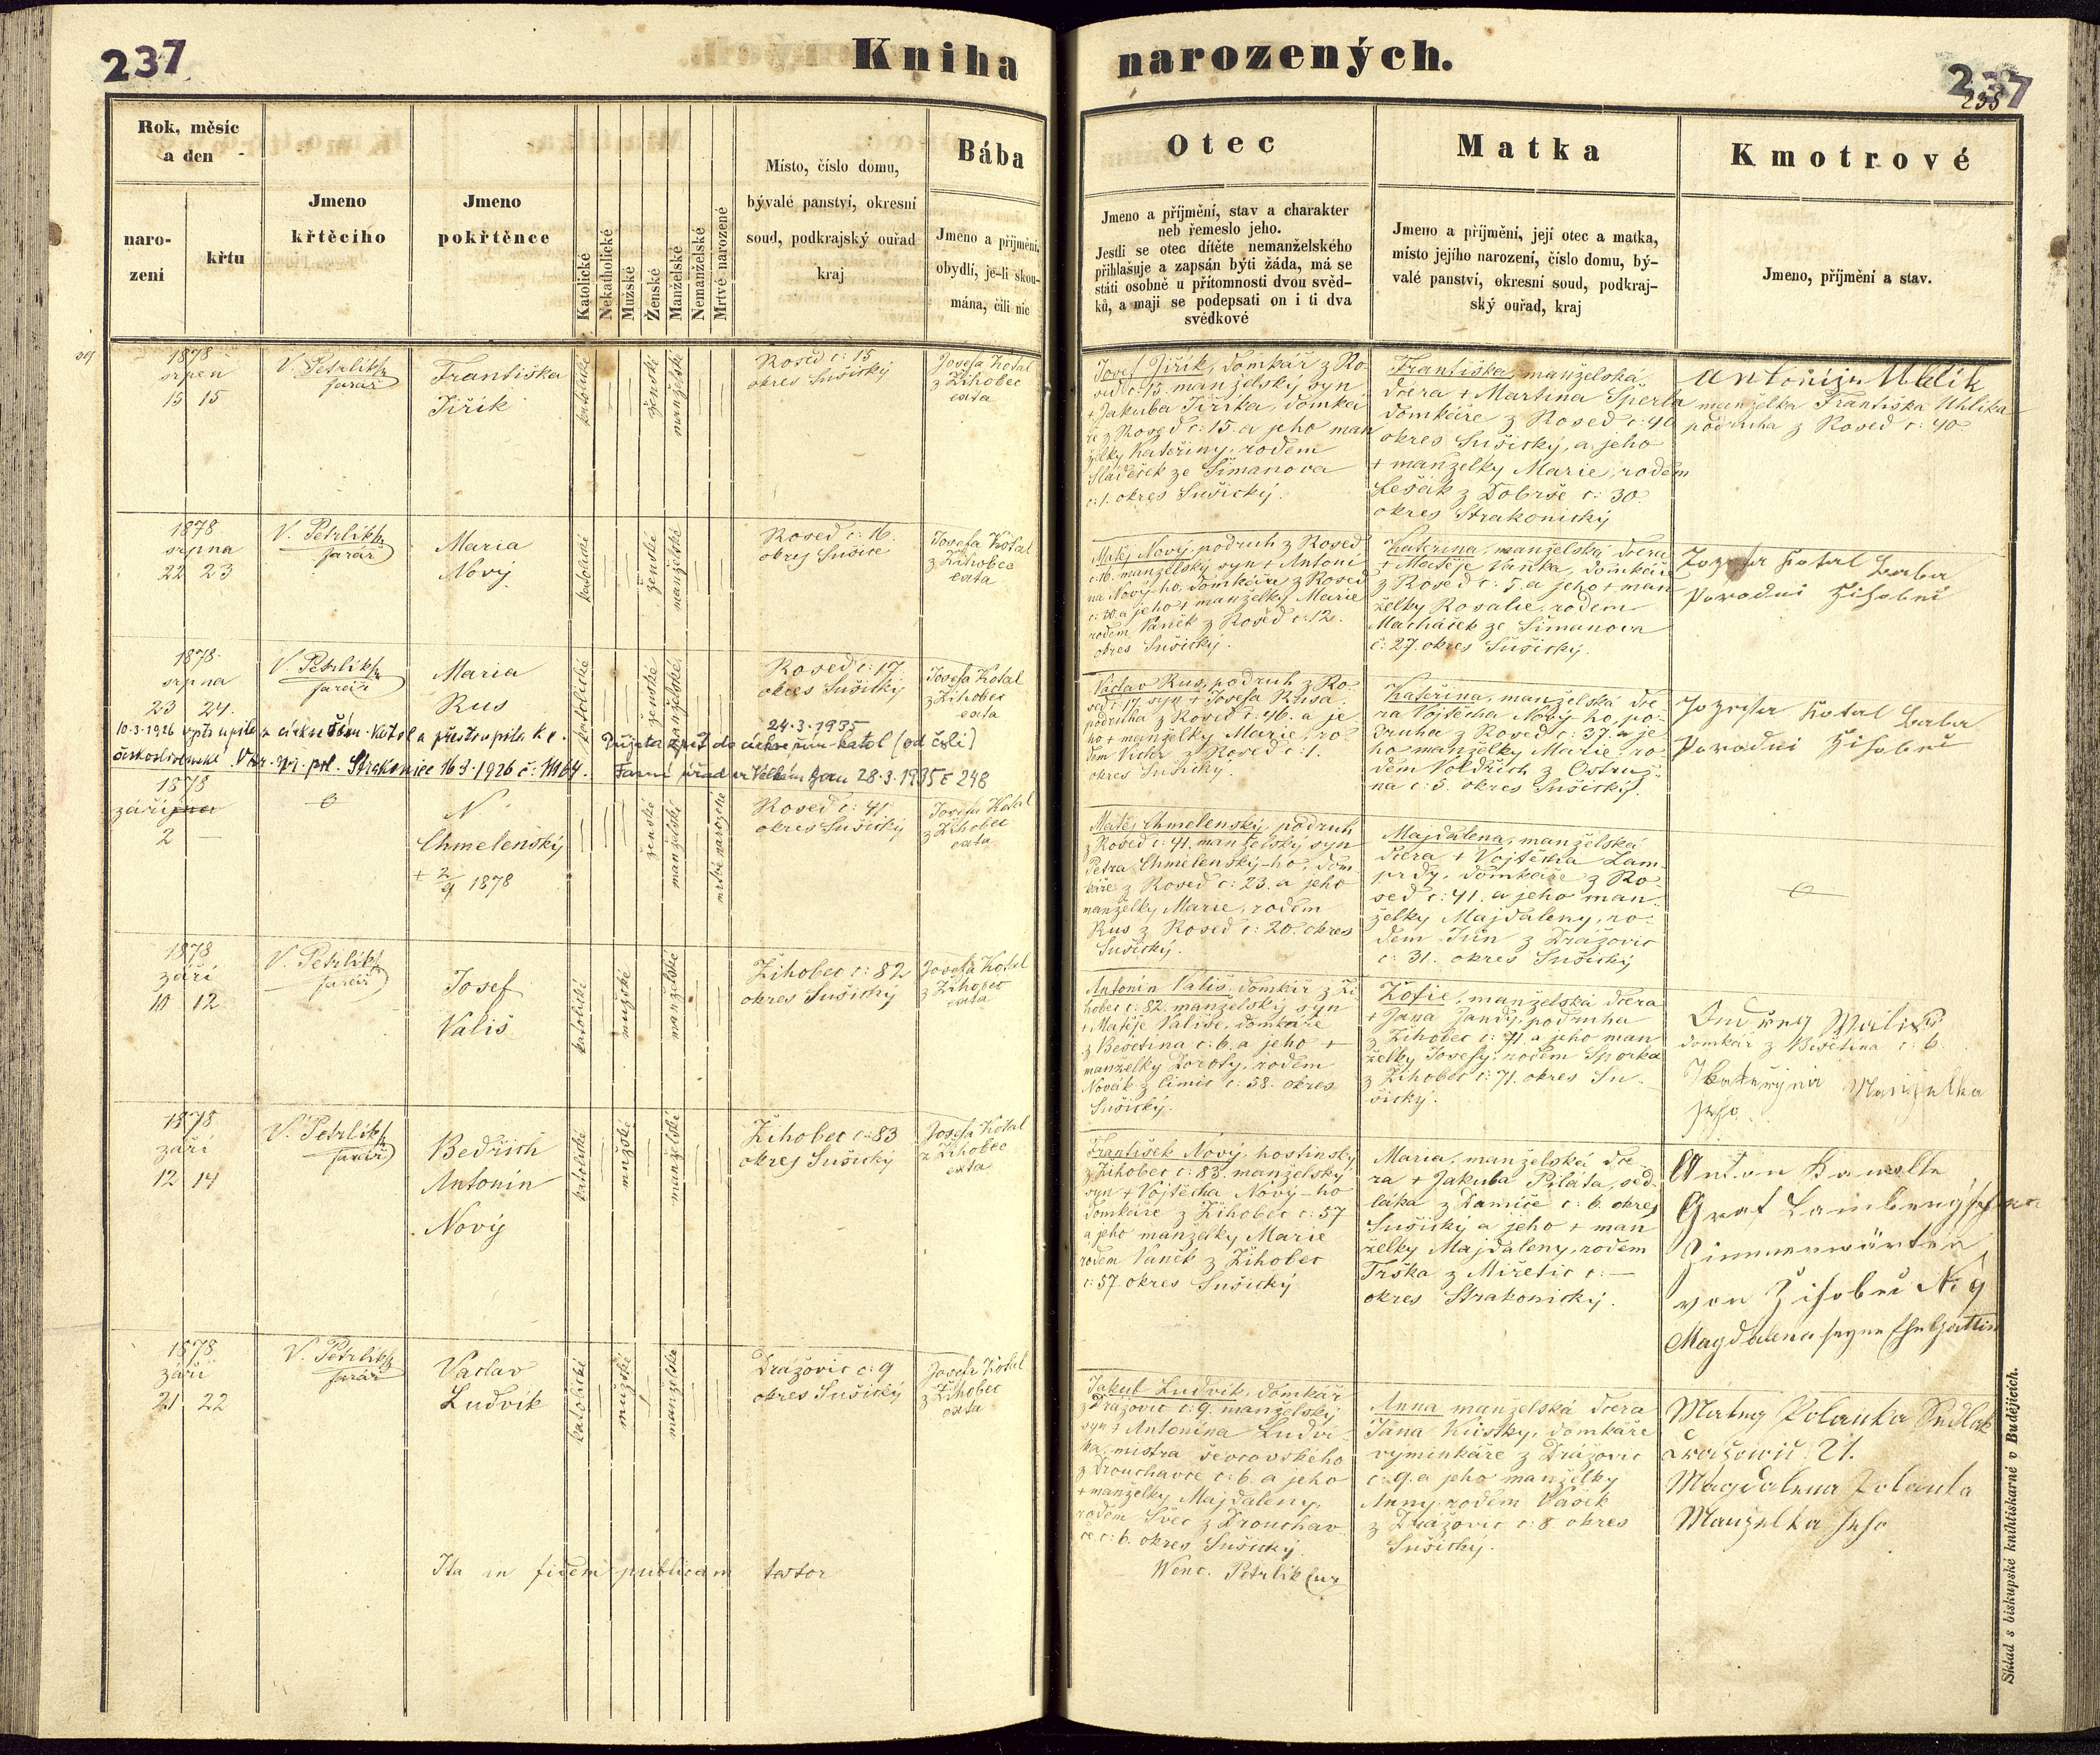 237
Kniha
narozených.
237
235
Rok, měsíc
a den
naro-
zení
křtu
Jmeno
křtěcího
Jmeno
pokřtěnce
Katolické
Nekatholické
Mužské
Ženské
Manželské
Nemanželské
Mrtvě narozené
Místo, číslo domu,
bývalé panství, okresní
soud, podkrajský ouřad
kraj
Bába
Jmeno a příjmění,
obydlí, je-li skou-
mána, čili nic
Otec
Jmeno a příjmění, stav a charakter
neb řemeslo jeho.
Jestli se otec dítěte nemanželského
přihlašuje a zapsán býti žáda, má se
státi osobně u přítomnosti dvou svěd-
ků, a mají se podepsati on i ti dva
svědkové
Matka
Jmeno a příjmění, její otec a matka,
místo jejího narození, číslo domu, bý-
valé panství, okresní soud, podkraj-
ský ouřad, kraj
Kmotrové
Jmeno, příjmění a stav.
1878
srpen
15 15
V. Petrlík
farář
Františka
Jiřík
katolické
ženské
manželské
Rosed č: 15
okres Sušický
Josefa Kotal
z Žihobec
exta
Josef Jiřík, domkář z Ro-
sed č: 15. manželský syn
+ Jakuba Jiříka, domká
ře z Rosed č: 15. a jeho man
želky Kateřiny, rodem
Sládeček ze Šimanova
č: 1. okres Sušický.
Františka manželská
dcera + Martina Šperla
domkáře z Rosed č: 40
okres Sušický, a jeho
+ manželky Marie, rodem
Lešák z Dobrše č: 30.
okres Strakonický
Antonín Uhlík
manželka Františka Uhlíka
podruha z Rosed č: 40
1878
srpna
22 23
V. Petrlík
farář
Maria
Nový
katolické
ženské
manželské
Rosed č: 16.
okres Sušice
Josefa Kotal
z Žihobce
exta
Matěj Nový, podruh z Rosed
č: 16. manželský syn + Antoní
na Nový-ho, domkáře z Rosed
č: 20. a jeho + manželky Marie
rodem Vaněk z Rosed č: 12.
okres Sušický.
Kateřina, manželská dcera
+ Matěje Vaňka, domkáře
z Rosed č: 5. a jeho + man
želky Rosalie, rodem
Macháček ze Šimanova
č: 27. okres Sušický.
Jozefa Kotal Baba
Porodni Žihobec
1878
srpna
23 24.
V. Petrlík
farář
Maria
Rus
katolické
ženské
manželské
Rosed č: 17
okres Sušický
Josefa Kotal
z Žihobec
exta
10.3.1926 vystoupila z církve řím.-katol a přestoupila k c.
československé. Vzr. spr. pol. Strakonice 16.3.1926 č: 11164.
24.3.1935
Přijata zpět do církve řím-katol (od čsl.)
Farní úřad ve Velkém Boru 28.3.1935 č 248
Václav Rus, podruh z Ro-
sed č: 17. syn + Josefa Rusa
podruha z Rosed č: 46. a je
ho + manželky Marie, ro
dem z Rosed č: 1.
okres Sušický.
Kateřina, manželská dce
ra Vojtěcha Nový-ho, po-
druha z Rosed č: 37. a je
ho manželky Marie, ro
dem Voldřich z Ostruž-
na č: 5. okres Sušický.
Jozefa Kotal Baba
Porodni Žihobec
1878
září
2 —
N.
Chmelenský
+ 2/9 1878
ženské
manželské
mrtvě narozené
Rosed č: 41
okres Sušický
Josefa Kotal
z Žihobec
exta
Matěj Chmelenský, podruh
z Rosed č: 41. manželský syn
Petra Chmelenský-ho, dom
káře z Rosed č: 23. a jeho
manželky Marie, rodem
Rus z Rosed č: 20. okres
Sušický.
Majdalena, manželská
dcera + Vojtěcha Lam-
prdy, domkáře z Ro-
sed č: 41. a jeho man-
želky Majdaleny, ro-
dem z Drážovic
č: 31. okres Sušický
1878
září
10 12
V. Petrlík
farář
Josef
Vališ
katolické
mužské
manželské
Žihobec č: 82
okres Sušický
Josefa Kotal
z Žihobec
exta
Antonín Vališ, domkář z Ži
hobec č: 82. manželský syn
+ Matěje Vališe, domkáře
z Bešetína č: 6. a jeho +
manželky Doroty, rodem
Novák z č: 58. okres
Sušický.
Žofie, manželská dcera
+ Jana Jandy, podruha
z Žihobec č: 71. a jeho man
želky Josefy, rodem Sporka
z Žihobec č: 71. okres Su-
šický.
Ondřej Wališ
domkář z Bešetína č: 6.
Kateřina Manželka
jeho
1878
září
12 14
V. Petrlík
farář
Bedřich
Antonín
Nový
katolické
mužské
manželské
Žihobec č: 83
okres Sušický
Josefa Kotal
z Žihobec
exta
František Nový, hostinský
z Žihobec č: 83. manželský
syn + Vojtěcha Nový-ho
domkáře z Žihobec č: 57
a jeho manželky Marie
rodem Vaněk z Žihobec
č: 57. okres Sušický
Maria, manželská dce
ra + Jakuba Piláta, sed-
láka z Damíče č: 6. okres
Sušický a jeho + man
želky Majdaleny, rodem
Trška z Mířetic č: —
okres Strakonický.
Anton
Graf Lamberg'scher
Zimmerwärter
von Žihobec No 9
Magdalena seyne Ehegattin
1878
září
21 22
V. Petrlík
farář
Václav
Ludvík
katolické
mužské
manželské
Drážovic č: 9
okres Sušický
Josefa Kotal
z Žihobec
exta
Jakub Ludvík, domkář
z Drážovic č: 9. manželský
syn + Antonína Ludví-
ka, mistra ševcovského
z Drouhavce č: 6. a jeho
+ manželky Majdaleny,
rodem Švec z Drouhav-
če č: 6. okres Sušický
Anna manželská dcera
Jana Kůstky, domkáře
výminkáře z Drážovic
č: 9. a jeho manželky
Anny rodem Vašek
z Drážovic č: 8. okres
Sušický.
Matieg Polanka Sedlak
Dražowic 21.
Magdalena Polanka
Manželka jeho
Ita in fidem publicam testor
Wenc. Petrlík
Sklad s biskupské knihtiskarně v Budějicích.